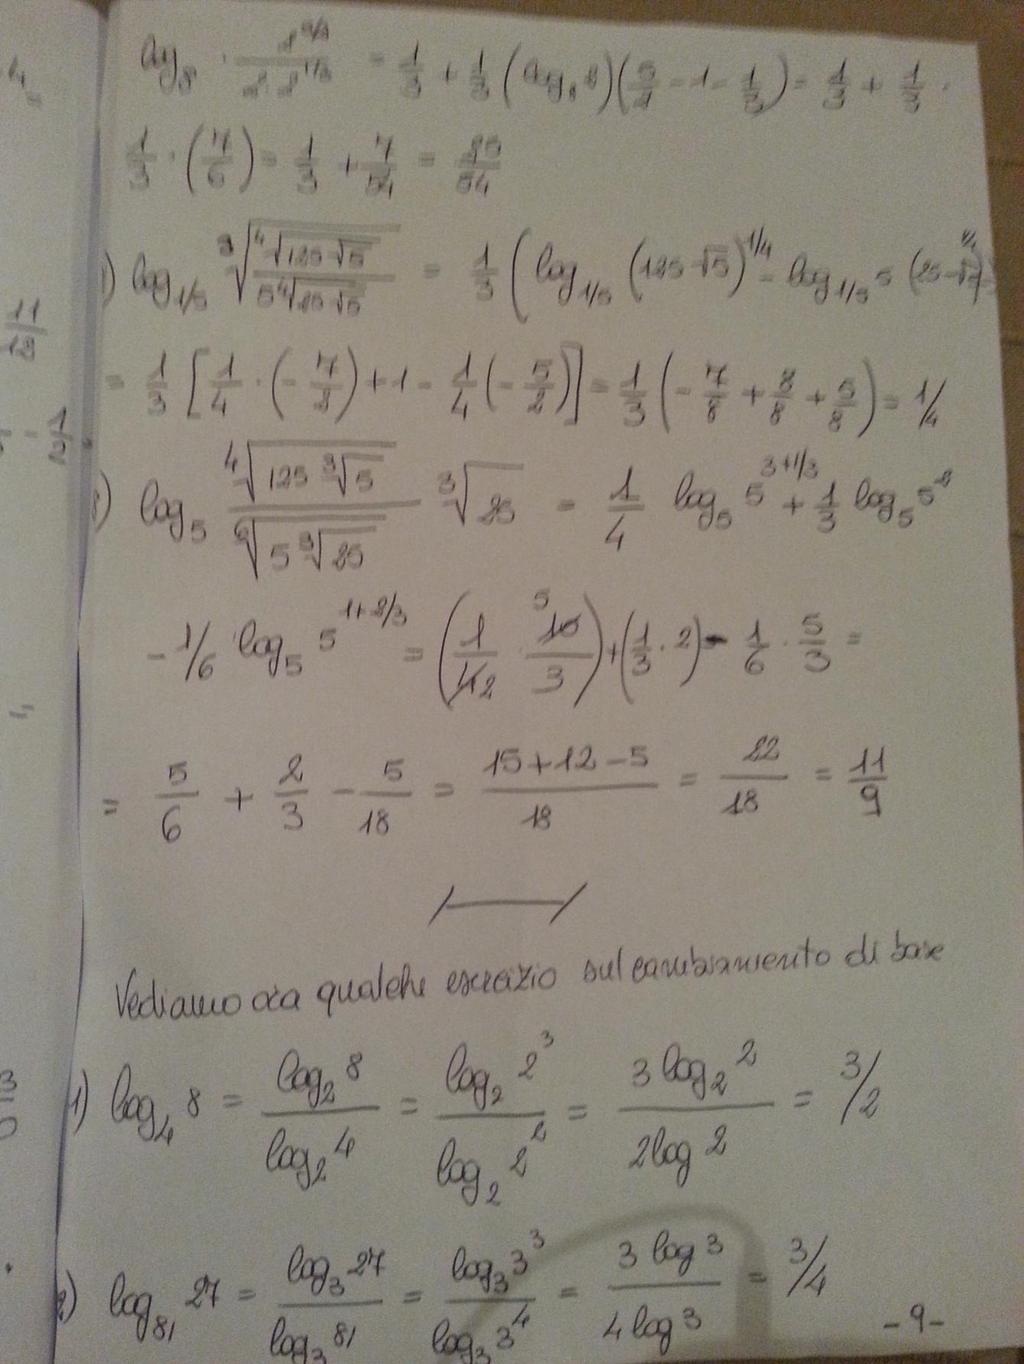 log₈ · = 1/3 + 1/3 (log₈ 2)(5/2 - 1 - 1/3) = 1/3 + 1/3 ·
1/3 · (7/6) = 1/3 + 7/54 = 25/54
) log_{1/5} ∛(⁴√(125·√5) / (5 ⁴√(25·√5))) = 1/3 (log_{1/5} (125·√5)^{1/4} - log_{1/5} 5 (25·√5)
= 1/3 [1/4 · (-7/2) + 1 - 1/4 (-5/2)] = 1/3 (-7/8 + 8/8 + 5/8) = 1/4
) log₅ (⁴√(125 ∛5) / ⁶√(5 ∛25)) ∛25 = 1/4 log₅ 5^{3+1/3} + 1/3 log₅ 5²
- 1/6 log₅ 5^{1+2/3} = (1/42 · 5 10/3) + (1/3 · 2) - 1/6 · 5/3 =
= 5/6 + 2/3 - 5/18 = (15+12-5)/18 = 22/18 = 11/9
Vediamo ora qualche esercizio sul cambiamento di base
1) log₄ 8 = log₂ 8 / log₂ 4 = log₂ 2³ / log₂ 2² = 3 log₂ 2 / 2 log 2 = 3/2
2) log₈₁ 27 = log₃ 27 / log₃ 81 = log₃ 3³ / log₃ 3⁴ = 3 log 3 / 4 log 3 = 3/4
- 9 -
11/18
3